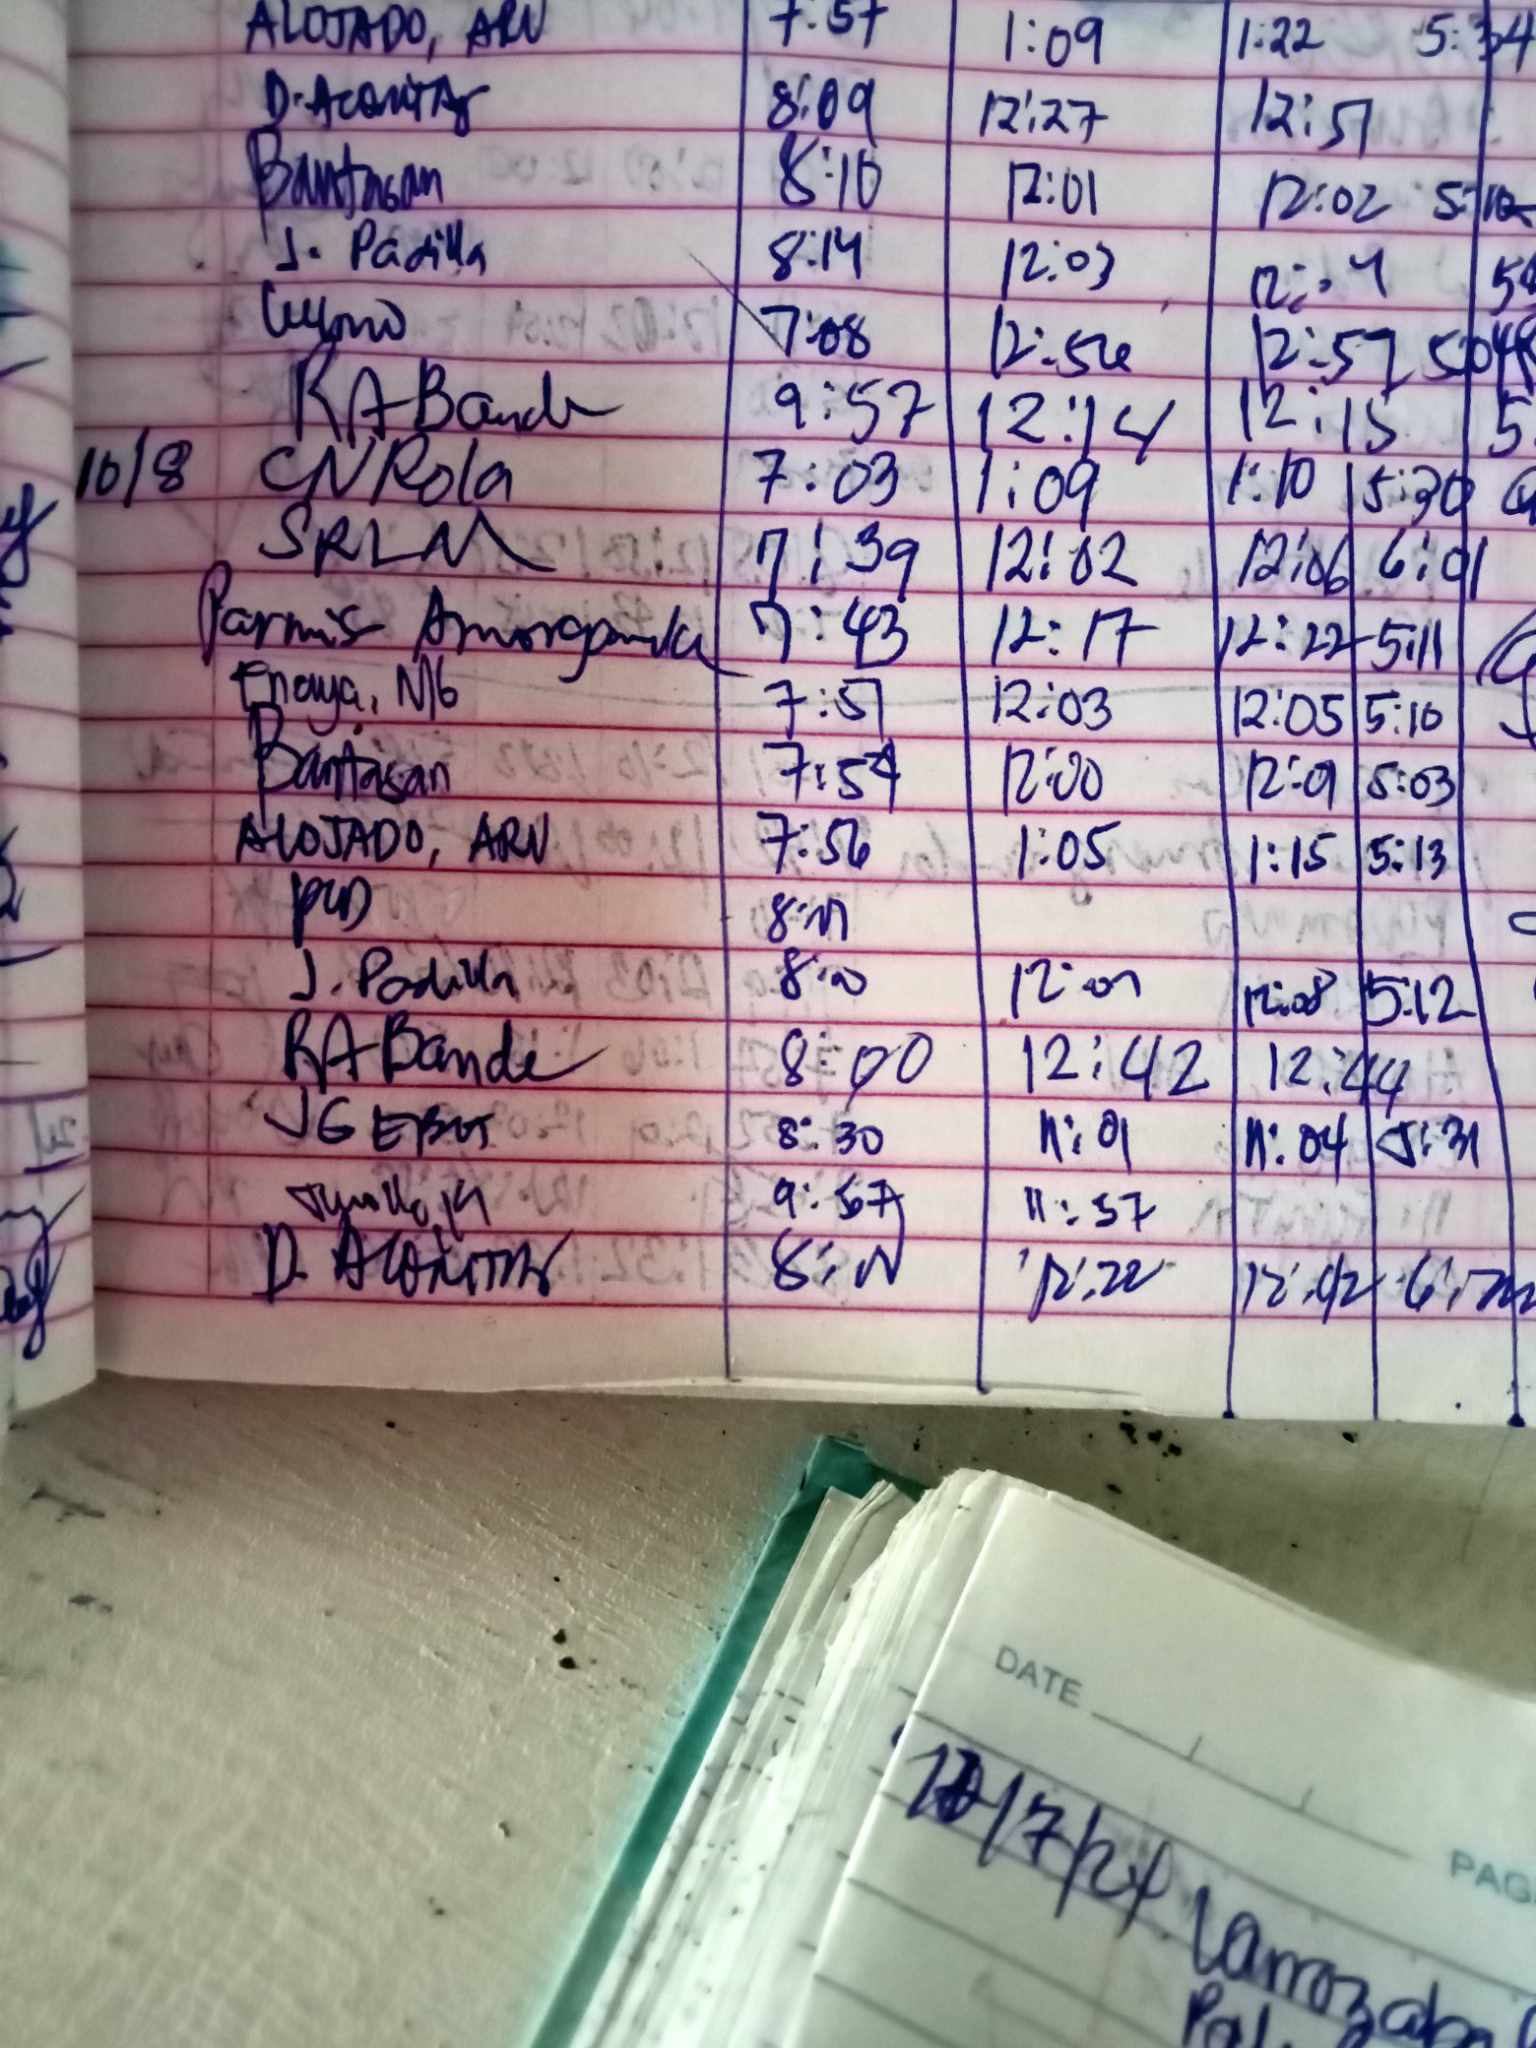 ALOJADO, ARN 7:57 1:09 1:22 5:34
D. ACONITAS 8:09 12:27 12:51
Bantasan 8:10 12:01 12:02 5:10
J. Padilla 8:14 12:03
7:08 12:56 12:57
RA Bande 9:57 12:14 12:15 5:
10/8 CNRola 7:03 1:09 1:10 5:30
SRLM 7:39 12:02 12:06 6:01
Parmis Amorganda 7:43 12:17 12:22 5:11
Enaya, NG 7:51 12:03 12:05 5:10
Bantasan 7:54 12:00 12:01 5:03
ALOJADO, ARN 7:56 1:05 1:15 5:13
J. Padilla 12:07 12:08 5:12
RA Bande 8:00 12:42 12:44
JG EBUS 8:30 11:01 11:04 5:31
9:57 11:57
D. ACONITAS 12:22
DATE
PAG
10/7/24 Larrozaba